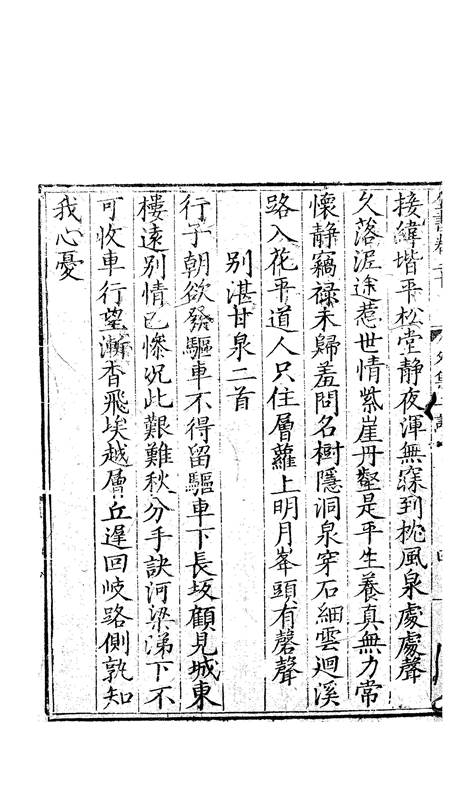 接緯堦平松堂靜夜渾無寐到枕風泉處處聲
久落泥途惹世情紫崖丹壑是平生養真無力常
懷靜竊祿未歸羞問名樹隱洞泉穿石細雲迴溪
路入花平道人只住層蘿上明月峯頭有磬聲
別湛甘泉二首
行子朝欲發驅車不得留驅車下長坂顧見城東
樓遠別情已慘况此艱難秋分手訣河梁涕下不
可收車行望漸杳飛埃越層丘遲回岐路側孰知
我心憂